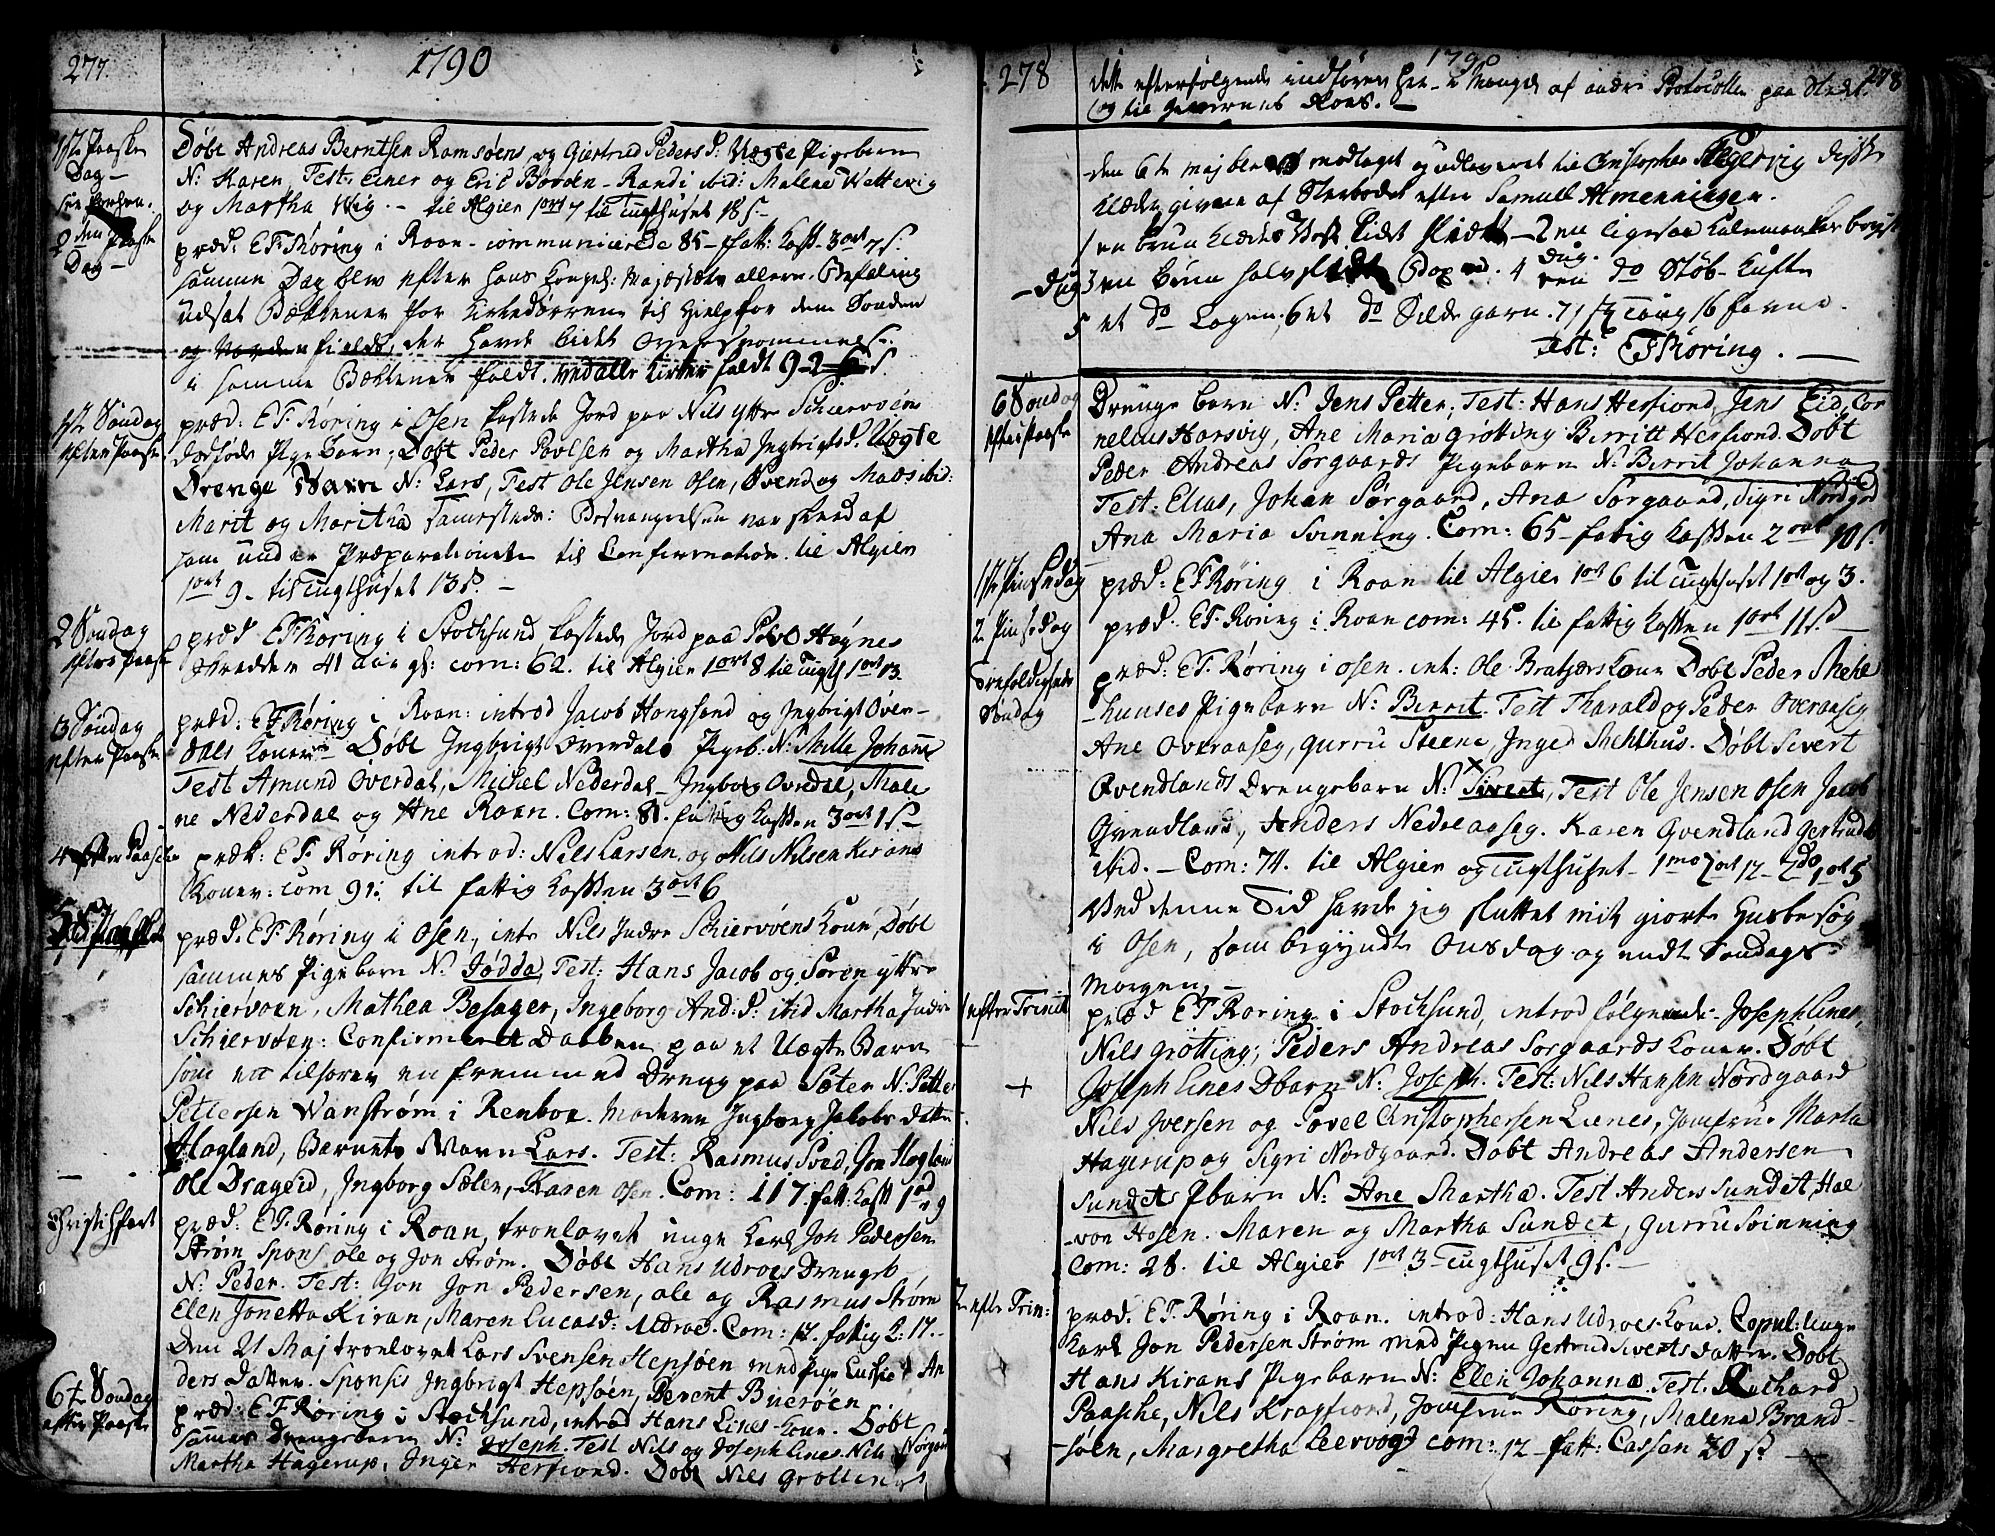 277.
1790
1ste Paaske
Dag —
Døbt Andreas Berntsen Ramsøens, og Giertrud Peders D: Uægte Pigebarn
N: Karen, Test: Einer og Eric Boroen - Randi ibid: Malena Wettevig
og Martha Wiig. — til Algier 1 ort 7 til Tugthuset 18 s. —
2den Paaske
Dag —
præd. E F Røring i Roan - communicerede 85 — fatt: Kass. 3 ort 7 s.
samme Dag blev efter hans Kongel: Majestæts allern. Befaling
udsat Bekkener for Kirkedørrene til Hielp for dem Sønden
og Nordenfields, der havde lidet Oversvømmelse.
i samme Bekkener faldt. ved alle Kirker faldt 9 - 2
1ste Søndag
efter Paaske
præd: E F Røring i Osen kastede Jord paa Nils yttre Schiervøens
dødføde Pige Barn; Døbt Peder Povlsen og Martha Ingbrigts D. Uægte
Drenge Barn N: Lars, Test Ole Jensen Osen, Svend og Mads ibid:
Marit og Maritha sammesteds: Besvangrelsen var skeed af
ham under Præparationen til Confirmation. til Algier
1 ort 9 — til Tugthuset 13 s. —
2 Søndag
efter Paaske
præd E F Røring i Stochsund kastede Jord paa Povel Høynes
Skredder 41 aar gl: com: 62. til Algier 1 ort 8 til Tugth 1 ort 13.
3 Søndag
efter Paaske
præd: E F Røring i Roan: introd Jacob Hongsand og Ingbrigt Over-
dals Koner — Døbt Ingbrigt Overdals Pigeb: N: Mille Johanna
Test Amund Overdal, Michel Nederdal — Ingborg Overdal, Male
ne Nederdal og Ane Roan. Com: 81. fattig Kassen 3 ort 1 s —
4 efter Paaske
præk: E F Røring introd: Nils Larsen og Nils Nilsen Kirans
Koner: com 91: til fattig Kassen 3 ort 6
præd: E F Røring i Osen, intr Nils Indre Schiervøens Kone, Døbt
sammes Pige barn N. Jødda, Test: Hans Jacob og Søren yttre
Schiervøen, Mathea Besager, Ingeborg And: D. ibid Martha Indre
Schiervøen: Confirmeret Daaben paa et Uægte Barn
som en tilforn en fremmed Dreng paa Sæter N: Petter
Pettersen Wanstrøm i Renboe. Moderen Ingborg Jacobs datter
Hogland, Barnets Navn Lars. Test: Rasmus Sved, Jon Hogland
Ole Drageid, Ingborg Sæter, Karen Osen. Com: 117. fatt: Kass 1
Christi Hfart
præd: E F. Røring i Roan, trolovet unge Karl Jon Pedersen
Strøm, Spons ole og Jon Strøm. Døbt Hans Udroes Drengeb
N: Peder. Test: Jon Jon Pedersen, ole og Rasmus Strøm
Elen Jonetta Kiran, Maren Lucasd: Udroe. Com: 17. fattig K: 17. —
Den 21 Maj trolovet Lars Svensen Hepsøen med Pige Lucie An
ders Datter. Sponsis Ingbrigt Hepsøen, Berent Buerøen
6te Søndag
efter Paaske
præd: E F Røring i Stocsund, introd Hans Lines Kone. Døbt
sammes Drengebarn N: Joseph. Test Nils og Joseph Lines. Nils Norgaar
Martha Hagerup, Inger Hersiond. Døbt Nils Grøttings
278
1790
278
dette efterfølgende indføres her i Mangel af anden Protocoll paa Stedet
og til Giverens Roes. —
den 6te maj blev modtaget og udleveret til Christopher Fegervig disse
Klæder givne af Sterbodet efter Samuel Almenningen.
1 en brun Klædes Vest Lidet slidt — 2 en ligesaa Kalemankes bryst
dug.
— dug 3 en brun halvslidt
4 en do Støb-Kufte
5 et do Lagen, 6 et do Silde garn. 7
16 favne.
Test: E F Røring. —
6 Søndag
efter Paaske
Drenge barn N: Jens Petter, Test: Hans Hersiond, Jens Eid, Cor
nelius Harsvig, Ane Maria Grøtting Birritt Hersiond. Døbt
Peder Andreas Sørgaards Pigebarn N: Birrit Johanna
Test: Elias, Johan Sørgaard, Ana Sørgaard, Sigri Nordgrd
Ana Maria Svinning. Com: 65 — fattig Kassen 2 ort 10 s.
1ste Pinsedag
præd: E F Røring i Roan til Algier 1 ort 6 til Tugthuset 1 ort og 3.
2 Pinsedag
præd. E F. Røring i Roan com: 45. til fattig Kassen 1 ort 11 s —
Trefoldigheds
Søndag
præd: E F. Røring i Osen. int: Ole Bratjers Kone Døbt Peder Skiel
-huuses Pigebarn N: Berrit. Test Tharald og Peder Overaaseg
Ane Overaaseg, Gurru Steene, Inger Skelhus. Døbt Sivert
Qvendlands Drengebarn N: Sivert, Test Ole Jensen Osen Jacob
Qvendland, Anders Nedreaaseg. Karen Qvendland Gertrud
ibid. — Com: 74. til Algier og Tugthuset — 1mo 2 ort 12 — 2do 1 ort 5
Ved denne Tid havde jeg sluttet mit giorte Husbesøg
i Osen, som begyndte Onsdag og endt Søndags
Morgen. —
1 efter Trinit
præd E F Røring i Stochsund, introd følgende — Joseph Lines,
Nils Grøtting, Peders Andreas Sorgaards Koner. Døbt
+
Joseph Lines Dbarn N: Joseph. Test: Nils Hansen Nordgaard
Nils Iversen og Povel Christophersen Lienes, Jomfrue Marta
Hagerup og Sigri Nordgaard. Døbt Andreas Andersen
Sundets Pbarn N: Ane Martha. Test Anders Sundet, Hal
-von Hosen. Maren og Martha Sundet, Gurru Svinning
Com: 28. til Algier 1 ort 3 — Tugthuset 9 s. —
2 efter Trin:
præd. E F. Røring i Roan. introd: Hans Udroes Kone. Copul: Unge
Karl Jon Pedersen Strøm med Pigen Gertrud Siverts datter. Døbt
Hans Kirans Pigebarn N: Elen Johanna. Test. Richard
Paasche, Nils Kragsiond, Jomfrue Røring, Malena Brand-
-søen, Margretha Leervog com: 12 — fatt: Cassen 20 s. —